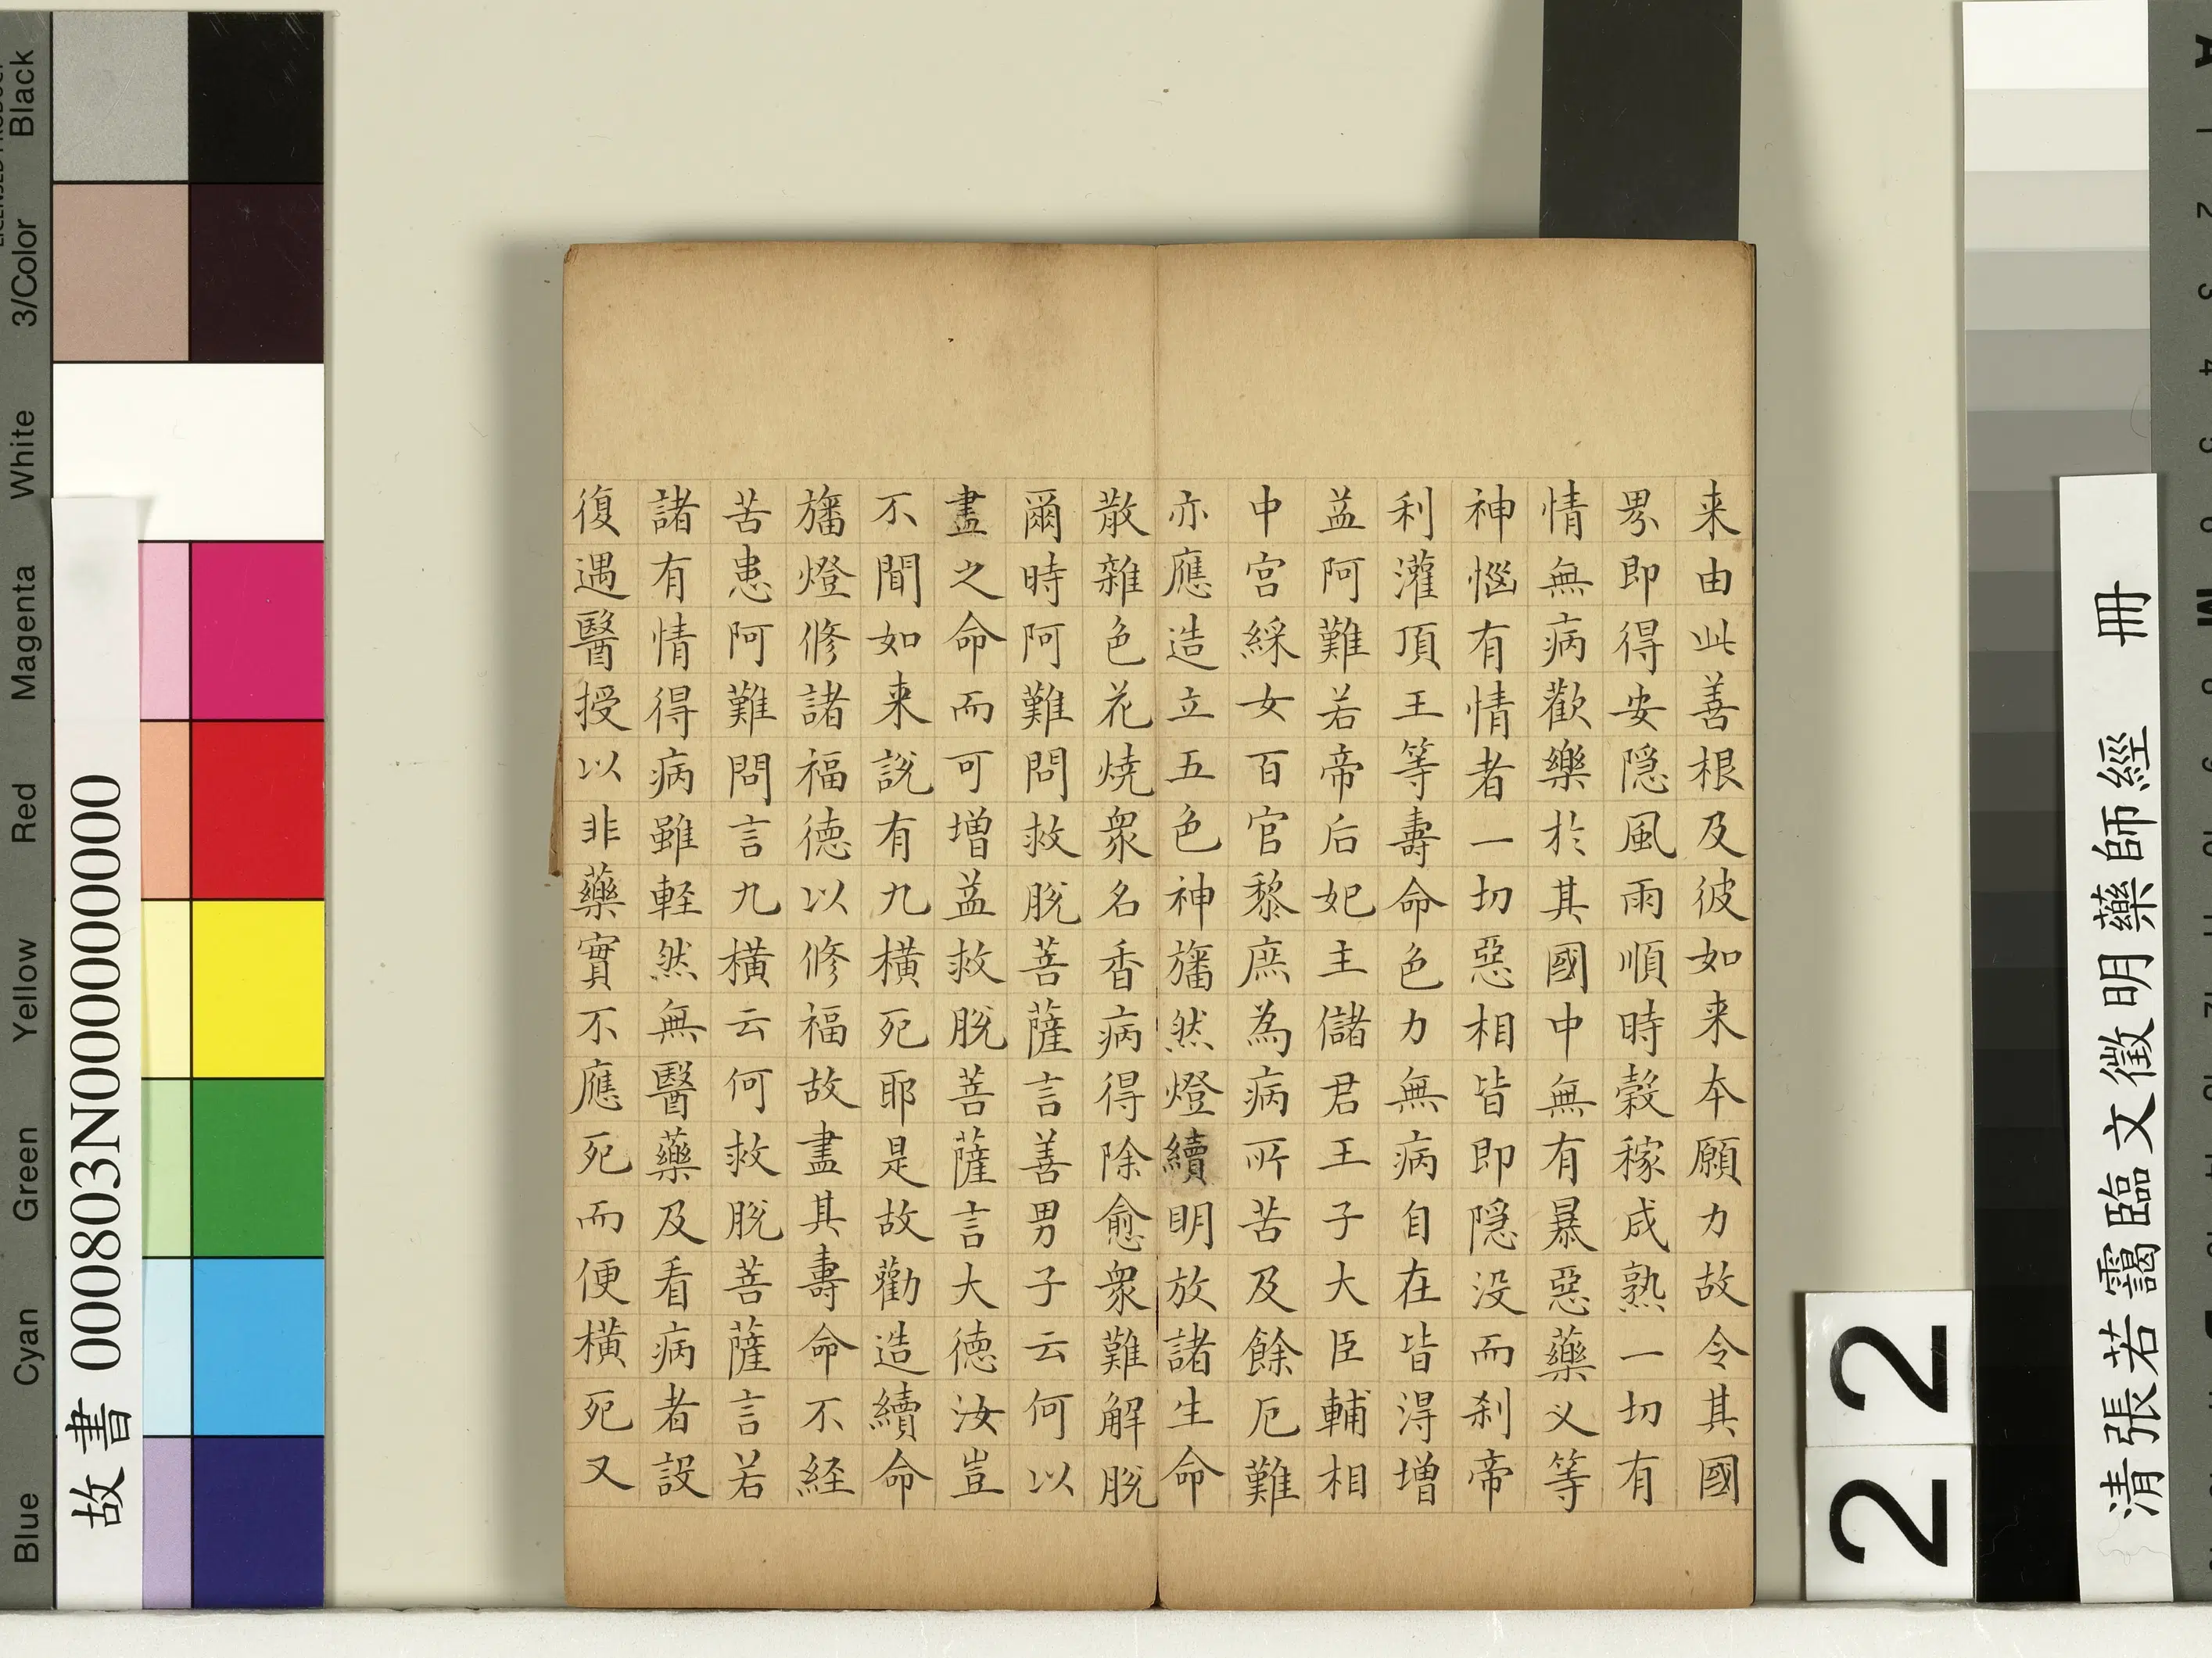 来由此善根及彼如来本願力故令其國
界即得安隱風雨順時穀稼成熟一切有
情無病歡樂於其國中無有暴惡藥叉等
神惱有情者一切惡相皆即隱没而刹帝
利灌頂王等壽命色力無病自在皆得增
益阿難若帝后妃主儲君王子大臣輔相
中宮綵女百官黎庶為病所苦及餘厄難
亦應造立五色神旛然燈續明放諸生命
散雜色花焼衆名香病得除愈衆難解脱
爾時阿難問救脱菩薩言善男子云何以
盡之命而可增益救脱菩薩言大德汝豈
不聞如来説有九橫死耶是故勸造續命
旛燈修諸福德以修福故盡其壽命不経
苦患阿難問言九橫云何救脱菩薩言若
諸有情得病雖軽然無醫藥及看病者設
復遇醫授以非藥實不應死而便橫死又
清張若靄臨文徵明藥師經 冊
22
故書 000803N000000000
Blue Cyan Green Yellow Red Magenta White 3/Color Black
A 1 2 3 4 5
M